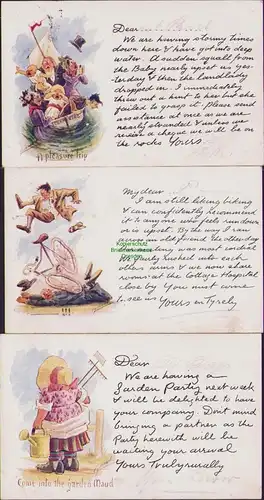 Dear
We are having stormy times
down here & have got into deep
water. A sudden squall from
the Baby nearly upset us yes-
terday & then the Landlady
dropped in. I immediately
threw out a hint to her but she
failed to grasp it. Please send
assistance at once as we are
nearly stranded & unless we
receive a cheque we will be on
the rocks Yours.
A pleasure trip
My dear
I am still liking biding
& can confidently recommend
it to anyone who feels run down
or is upset. By the way I ran
across an old friend the other day
the meeting was most cordial
We fairly rushed into each
others arms & we now share
rooms at the Cottage Hospital
close by You must come
to see us Yours en Tyrely
Dear
We are having a
Garden Party next week
& will be delighted to have
your company. Don't mind
bringing a partner as the
Party herewith will be
waiting your arrival
Yours Trulyrurally
Come into the garden Maud